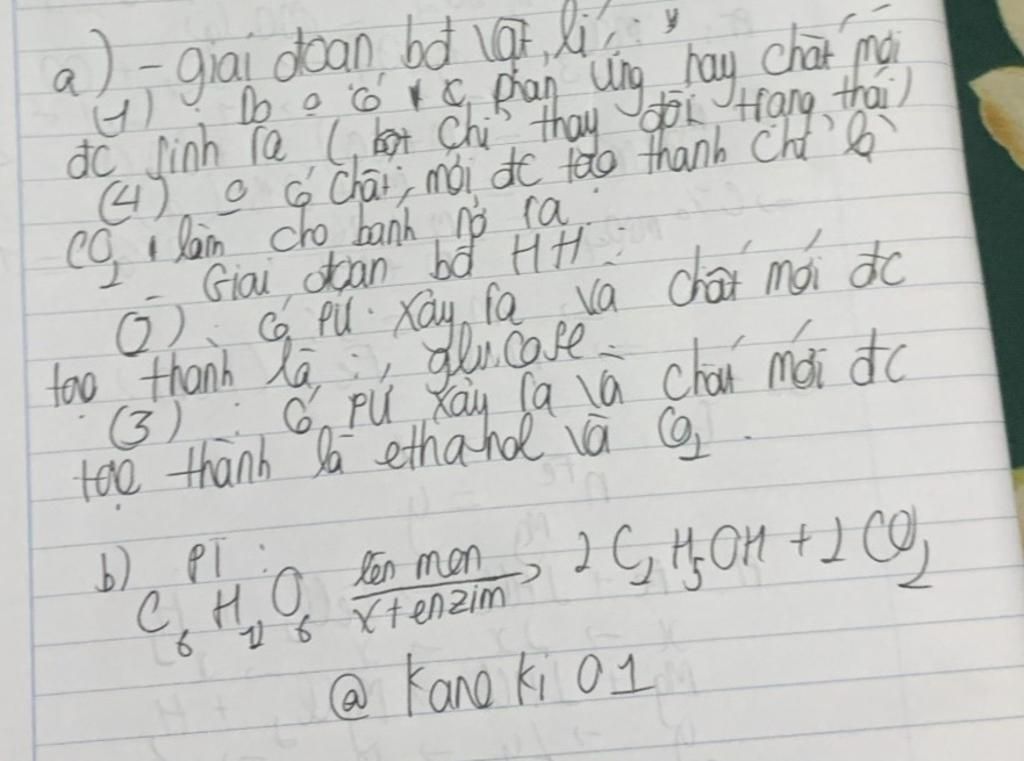 a) - giai đoạn bđ vật lí:
(1) : Do o có x c, phản ứng hay chất mới
đc sinh ra ( bột chỉ thay đổi trạng thái)
(4) o có chất mới đc tạo thành chỉ là
CO2 làm cho bánh nở ra
- Giai đoạn bđ HH:
(2): có PƯ xảy ra và chất mới đc
tạo thành là : glucose
(3) : Có PƯ xảy ra và chất mới đc
tạo thành là ethahol và CO2.
b) PT :
C6H12O6 lên men/xt enzim → 2C2H5OH + 2CO2
@ Kano ki 01